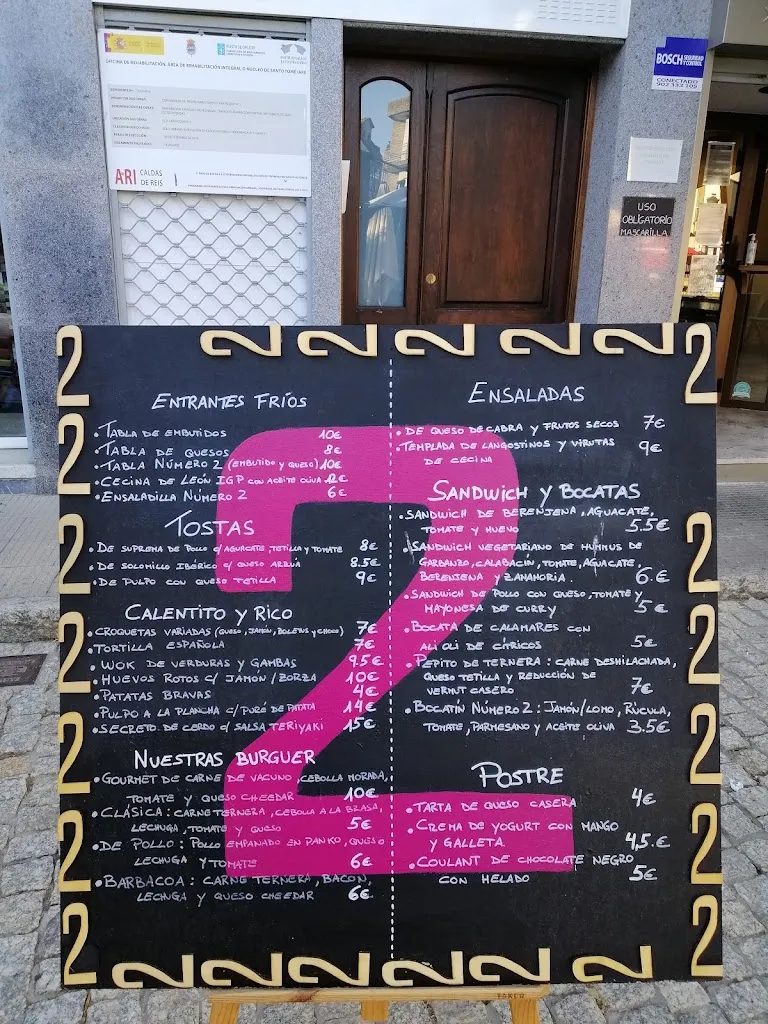 OFICINA DE REHABILITACIÓN. ÁREA DE REHABILITACIÓN INTEGRAL
ARI CALDAS
DE REIS
BOSCH SEGURIDAD
Y CONTROL
CONECTADO
902 333 105
USO
OBLIGATORIO
MASCARILLA
2 2 2 2 2 2 2
ENTRANTES FRÍOS
• TABLA DE EMBUTIDOS 10€
• TABLA DE QUESOS 8€
• TABLA NÚMERO 2 (EMBUTIDO Y QUESO) 10€
• CECINA DE LEÓN IGP CON ACEITE OLIVA 12€
• ENSALADILLA NÚMERO 2 6€
TOSTAS
• DE SUPREMA DE POLLO C/ AGUACATE, TETILLA Y TOMATE 8€
• DE SOLOMILLO IBÉRICO C/ QUESO ARZUA 8.5€
• DE PULPO CON QUESO TETILLA 9€
CALENTITO Y RICO
• CROQUETAS VARIADAS (QUESO, JAMÓN, BOLETUS Y CHOCO) 7€
• TORTILLA ESPAÑOLA 7€
• WOK DE VERDURAS Y GAMBAS 9.5€
• HUEVOS ROTOS C/ JAMÓN/ZORZA 10€
• PATATAS BRAVAS 4€
• PULPO A LA PLANCHA C/ PURÉ DE PATATA 14€
• SECRETO DE CERDO C/ SALSA TERIYAKI 15€
NUESTRAS BURGUER
• GOURMET DE CARNE DE VACUNO, CEBOLLA MORADA,
TOMATE Y QUESO CHEEDAR 10€
• CLÁSICA: CARNE TERNERA, CEBOLLA A LA BRASA,
LECHUGA, TOMATE Y QUESO 5€
• DE POLLO: POLLO EMPANADO EN PANKO, QUESO
LECHUGA Y TOMATE 6€
• BARBACOA: CARNE TERNERA, BACON,
LECHUGA Y QUESO CHEEDAR 6€
ENSALADAS
• DE QUESO DE CABRA Y FRUTOS SECOS 7€
• TEMPLADA DE LANGOSTINOS Y VIRUTAS 9€
DE CECINA
SANDWICH Y BOCATAS
• SANDWICH DE BERENJENA, AGUACATE,
TOMATE Y HUEVO 5.5€
• SANDWICH VEGETARIANO DE HUMMUS DE
GARBANZO, CALABACÍN, TOMATE, AGUACATE,
BERENJENA Y ZANAHORIA. 6.€
• SANDWICH DE POLLO CON QUESO, TOMATE Y
MAYONESA DE CURRY 5€
• BOCATA DE CALAMARES CON
ALI OLI DE CÍTRICOS 5€
• PEPITO DE TERNERA: CARNE DESHILACHADA,
QUESO TETILLA Y REDUCCIÓN DE
VERMUT CASERO 7€
• BOCATÍN NÚMERO 2: JAMÓN/LOMO, RÚCULA,
TOMATE, PARMESANO Y ACEITE OLIVA 3.5€
POSTRE
• TARTA DE QUESO CASERA 4€
• CREMA DE YOGURT CON MANGO
Y GALLETA 4,5.€
• COULANT DE CHOCOLATE NEGRO
CON HELADO 5€
2 2 2 2 2 2